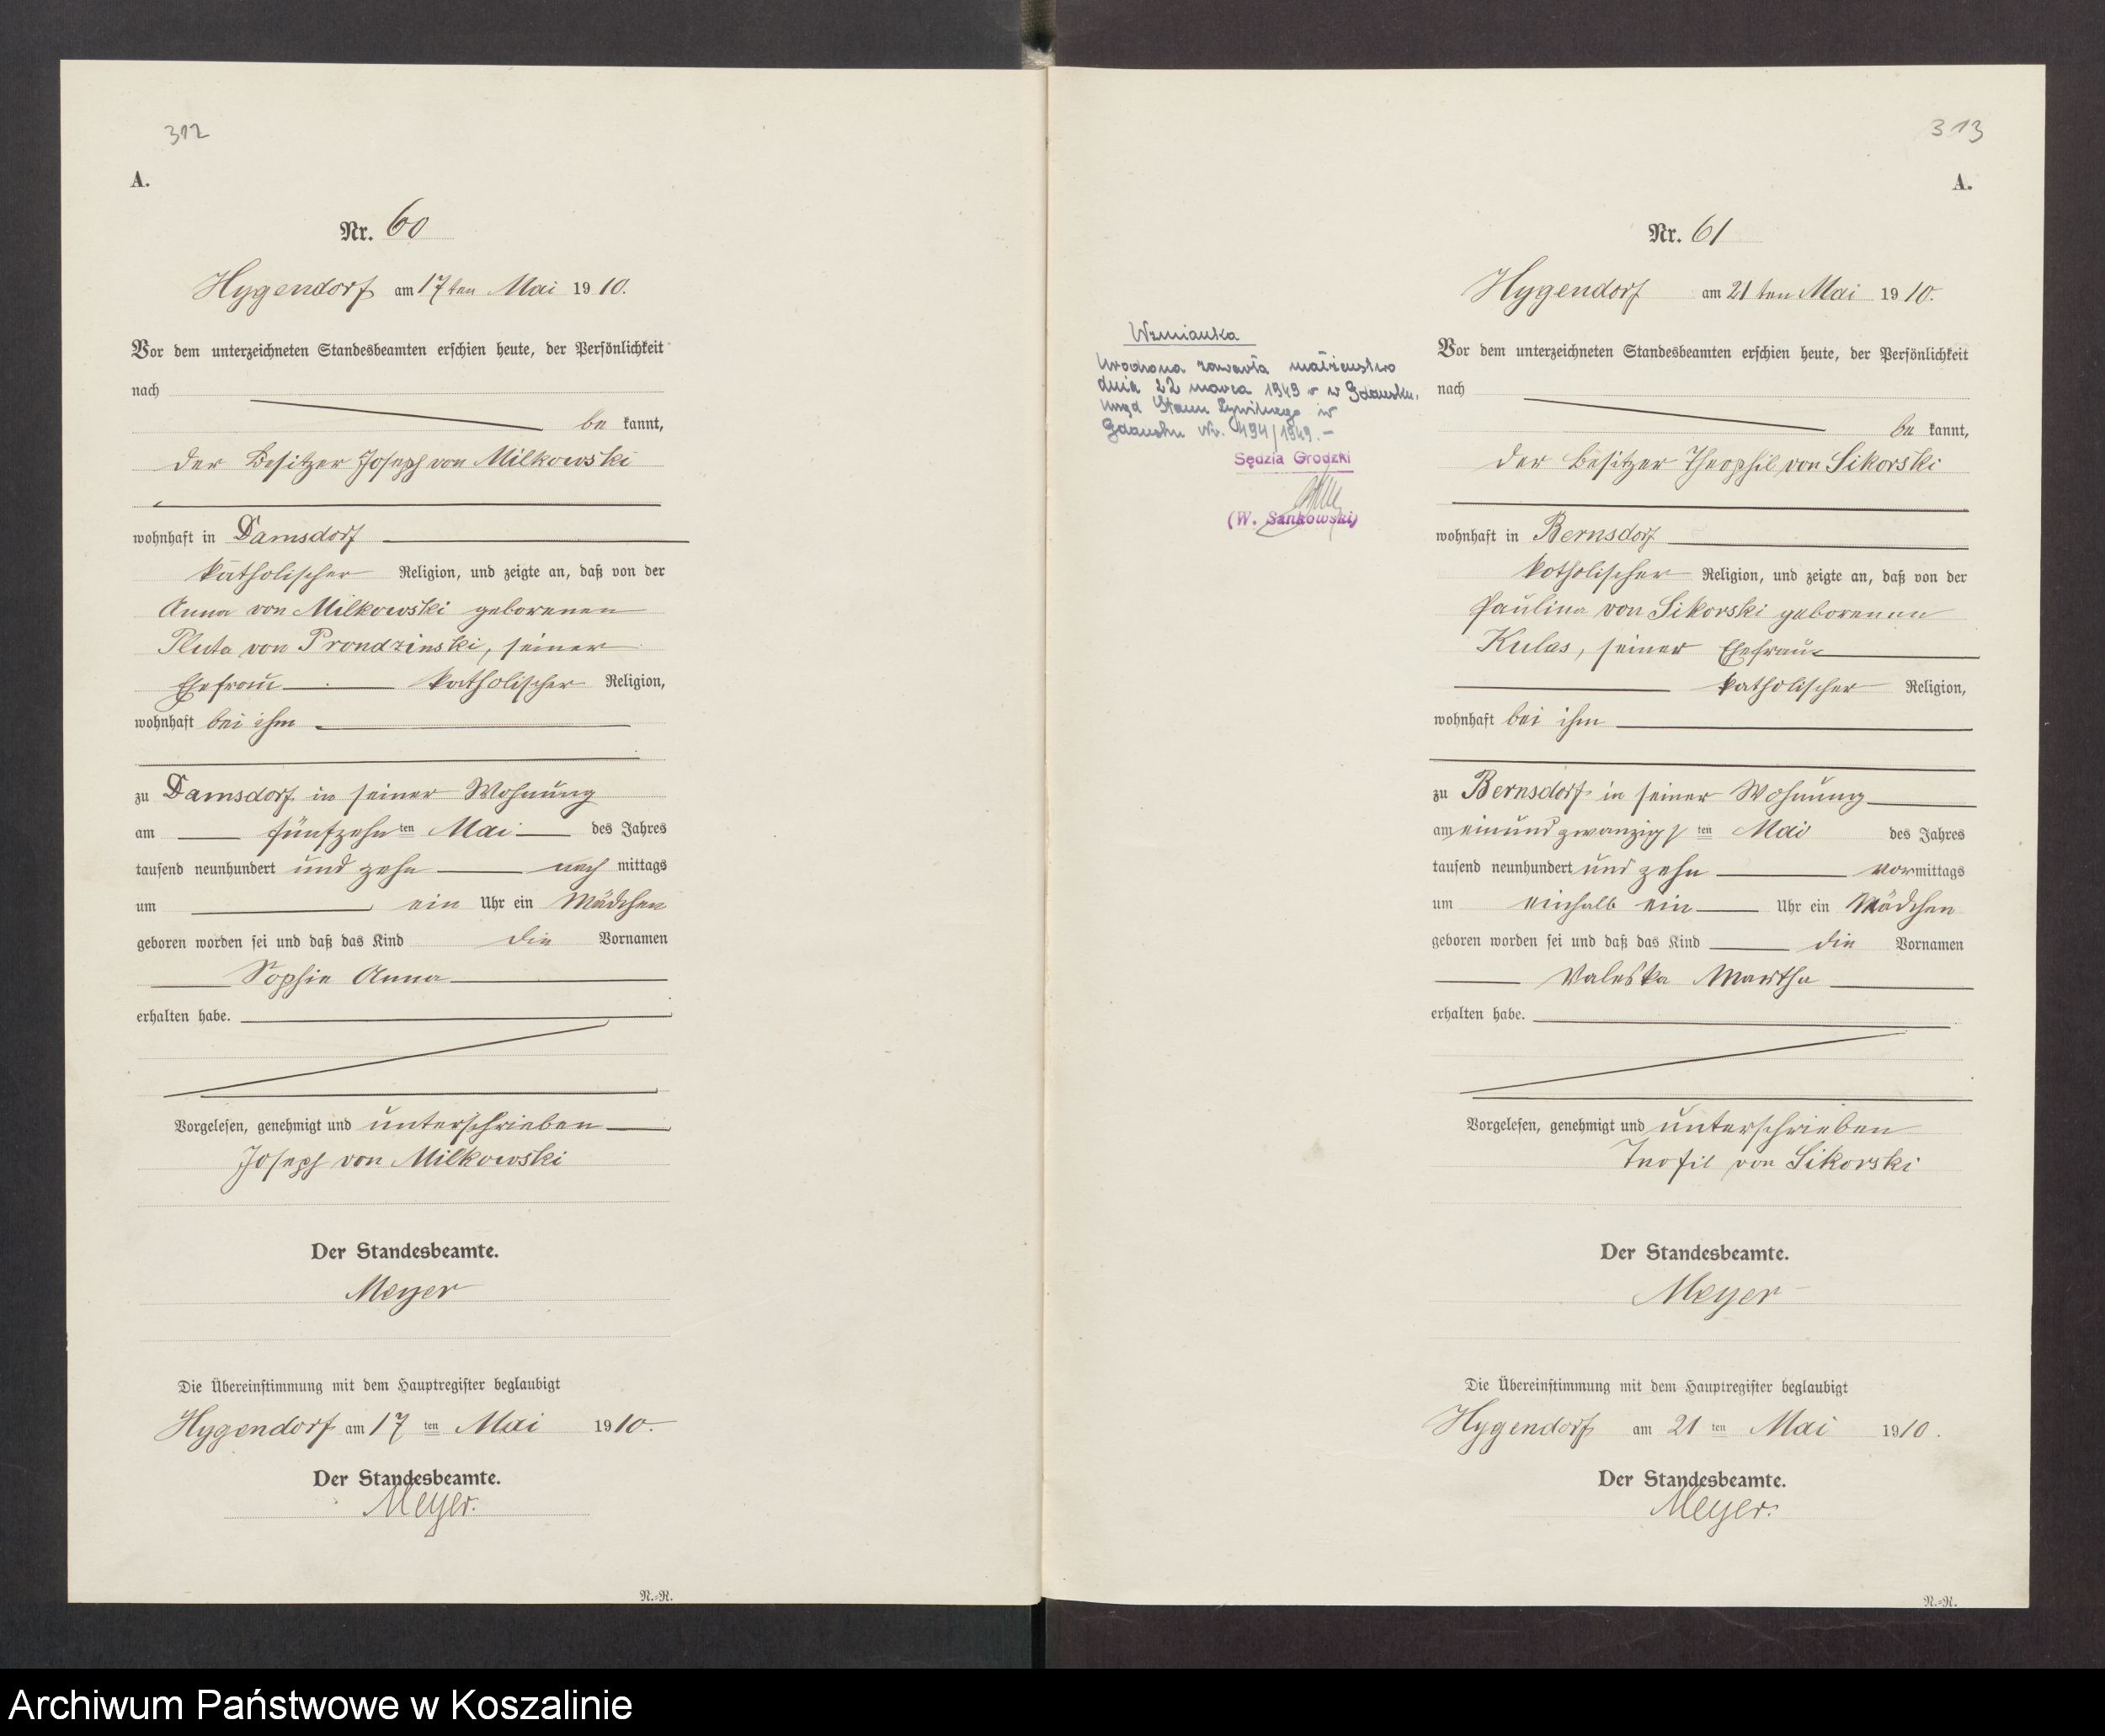 312
A.
Nr. 60
Hygendorf am 17ten Mai 1910.
Vor dem unterzeichneten Standesbeamten erschien heute, der Persönlichkeit
nach
be kannt,
der Besitzer Joseph von Milkowski
wohnhaft in Damsdorf
katholischer Religion, und zeigte an, daß von der
Anna von Milkowski geborenen
Pluta von Prondzinski, seiner
Ehefrau katholischer Religion,
wohnhaft bei ihm
zu Damsdorf in seiner Wohnung
am fünfzehn ten Mai des Jahres
tausend neunhundert und zehn nach mittags
um ein Uhr ein Mädchen
geboren worden sei und daß das Kind die Vornamen
Sophie Anna
erhalten habe.
Vorgelesen, genehmigt und unterschrieben
Joseph von Milkowski
Der Standesbeamte.
Meyer
Die Übereinstimmung mit dem Hauptregister beglaubigt
Hygendorf am 17 ten Mai 1910.
Der Standesbeamte.
Meyer.
N.=R.
313
A.
Nr. 61
Hygendorf am 21ten Mai 1910.
Wzmianka
Urodzona zawarła małżeństwo
dnia 22 marca 1949 r w Gdańsku,
Urząd Stanu Cywilnego w
Gdańsku Nr. 494/1949.-
Sędzia Grodzki
(W. Sankowski)
Vor dem unterzeichneten Standesbeamten erschien heute, der Persönlichkeit
nach
be kannt,
der Besitzer Theophil von Sikorski
wohnhaft in Bernsdorf
katholischer Religion, und zeigte an, daß von der
Paulina von Sikorski geborenen
Kulas, seiner Ehefrau
katholischer Religion,
wohnhaft bei ihm
zu Bernsdorf in seiner Wohnung
am einundzwanzigs ten Mai des Jahres
tausend neunhundert und zehn vormittags
um einhalb ein Uhr ein Mädchen
geboren worden sei und daß das Kind die Vornamen
Valeska Martha
erhalten habe.
Vorgelesen, genehmigt und unterschrieben
Teofil von Sikorski
Der Standesbeamte.
Meyer
Die Übereinstimmung mit dem Hauptregister beglaubigt
Hygendorf am 21 ten Mai 1910.
Der Standesbeamte.
Meyer.
N.=R.
Archiwum Państwowe w Koszalinie